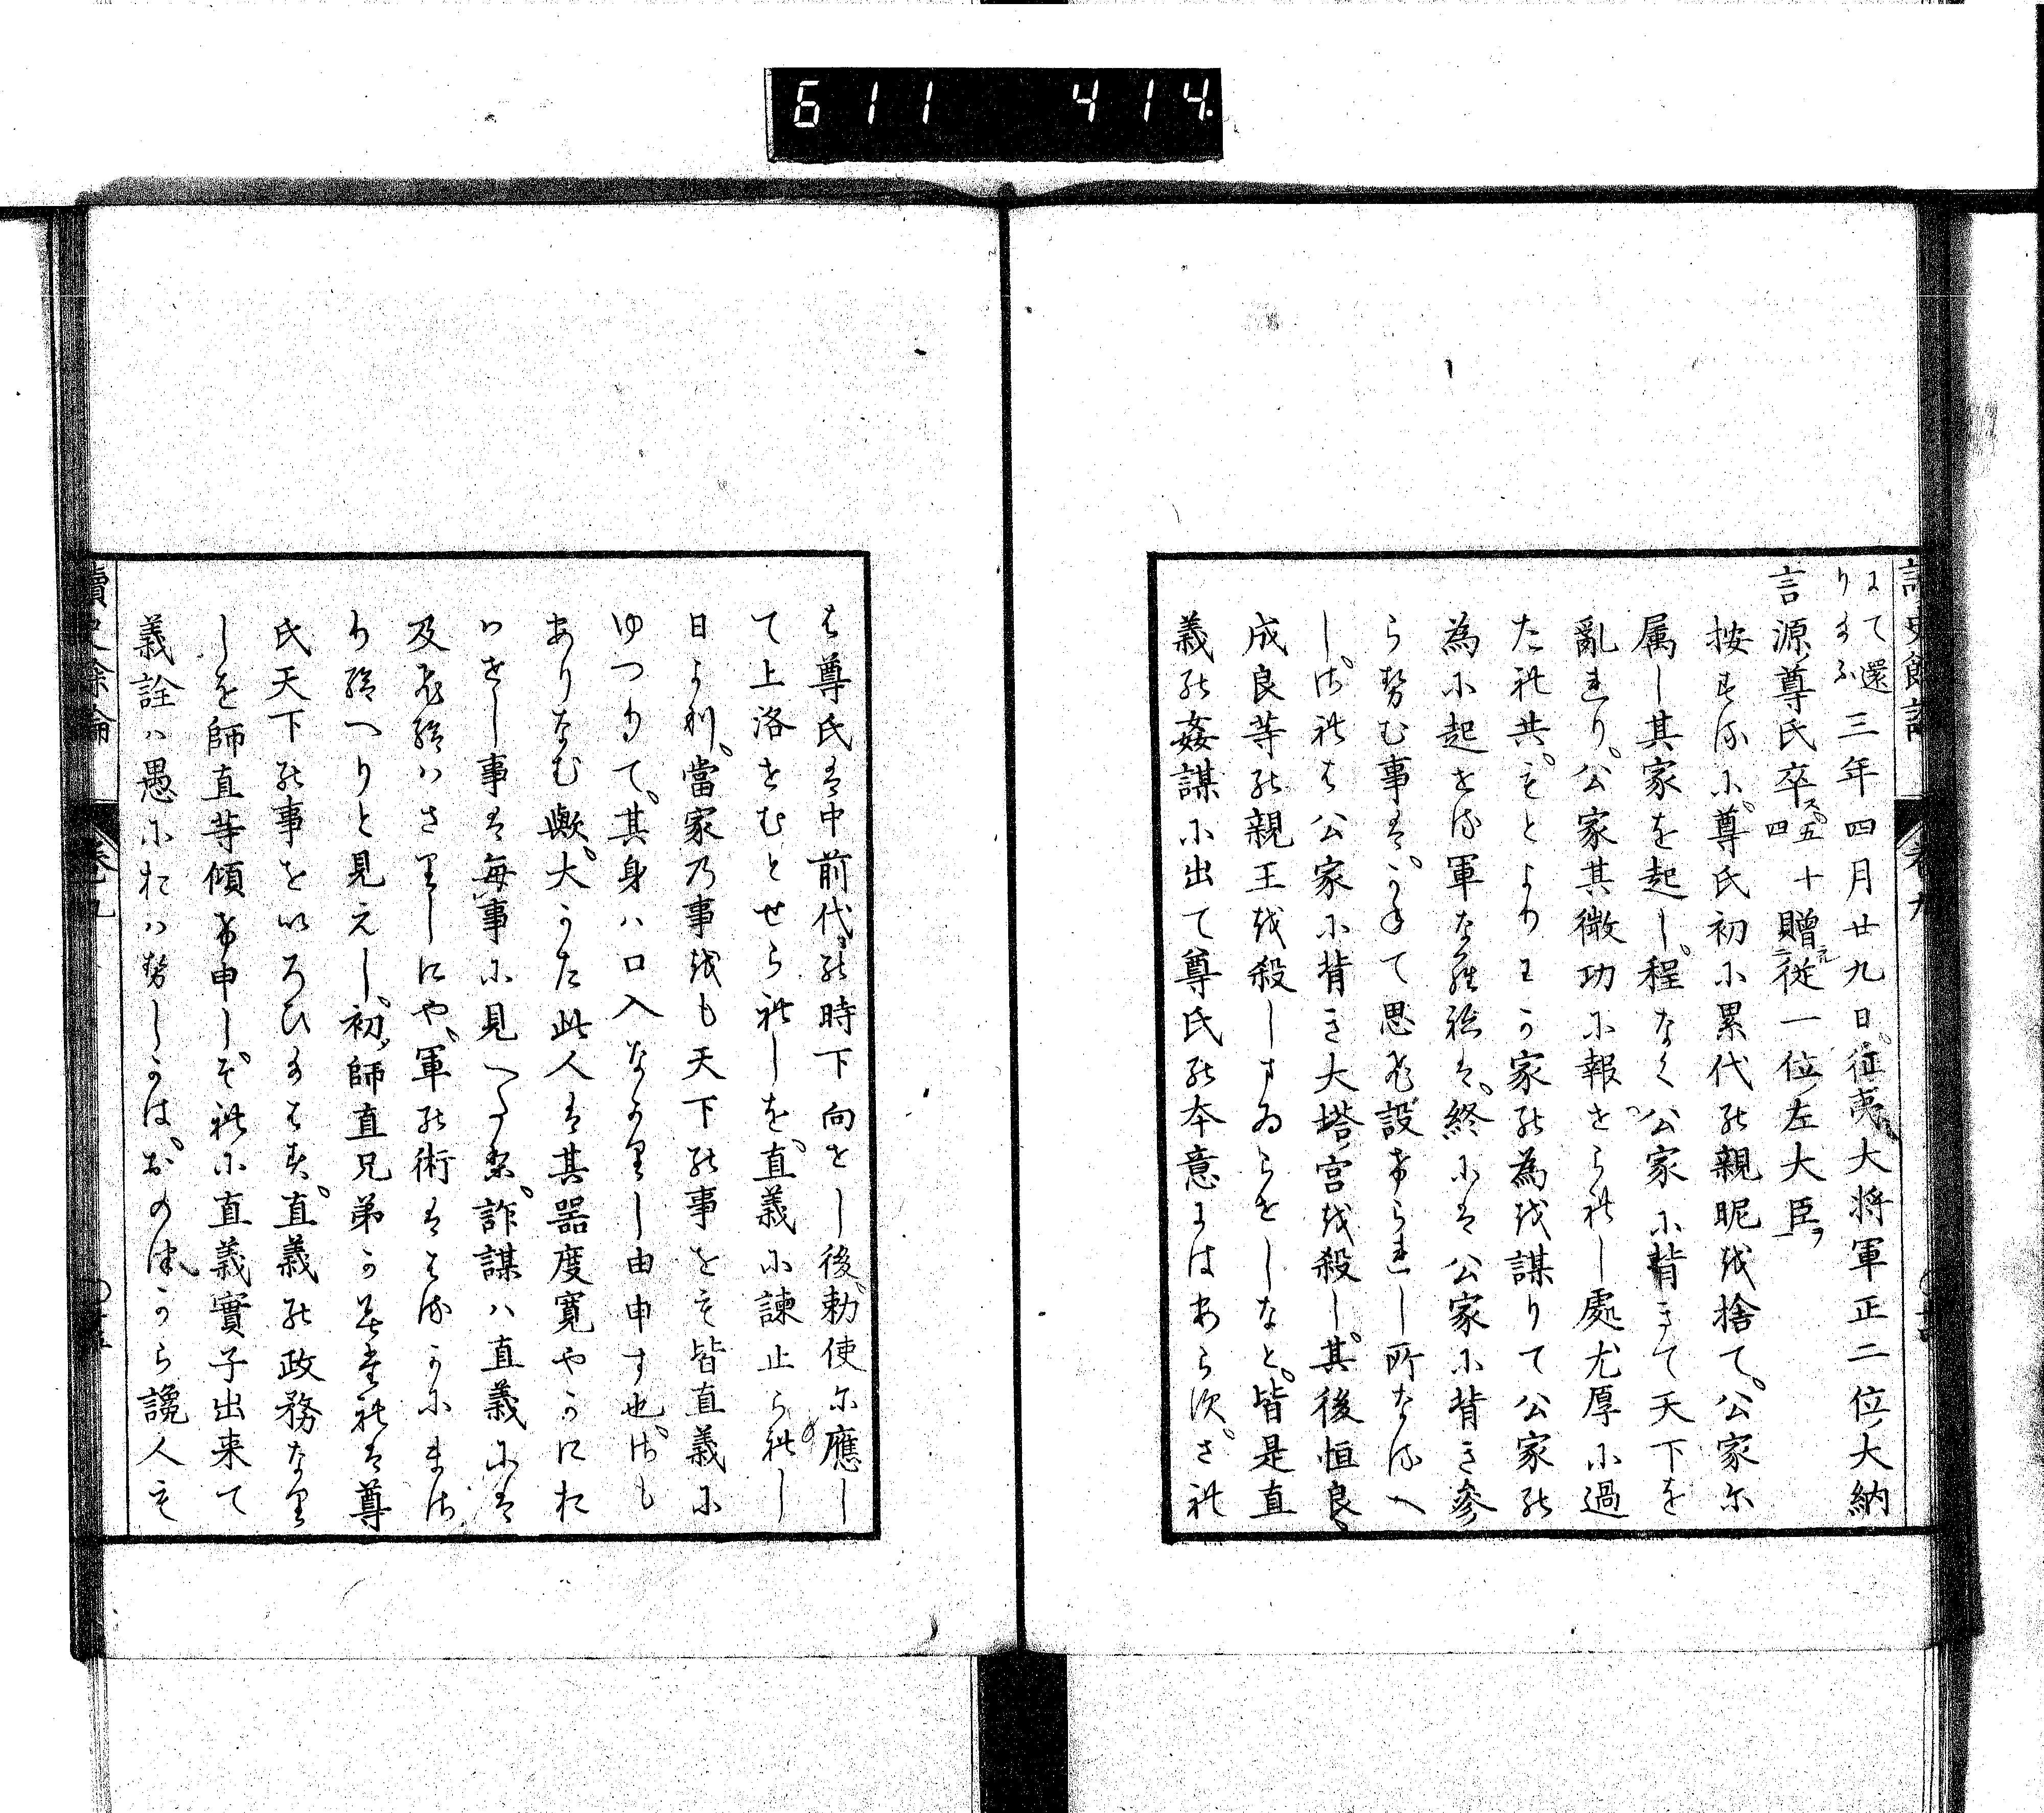 611 414
讀史餘論 卷九
にて還
りまふ
三年四月廿九日。征夷大将軍正二位大納
言源尊氏卒ス。五十四 贈従一位左大臣ヲ
按するに。尊氏初に累代の親昵を捨て。公家に
属し其家を起し。程なく公家に背きて天下を
亂れり。公家其微功に報せられし處尤厚に過
たれ共。もとよりわか家の為を謀りて公家の
為に起せる軍ならねは。終には公家に背き参
らせむ事は。かねて思ひ設けられし所なるへ
し。されは公家に背き大塔宮を殺し。其後恒良。
成良等の親王を殺しまゐらせしなと。皆是直
義の姦謀に出て尊氏の本意にはあらす。され
は尊氏は中前代の時下向せし後勅使に應し
て上洛せむとせられしを。直義に諫止られし
日より。當家乃事をも天下の事をも皆直義に
ゆつりて。其身ハ口入なかりし由申す也。さも
ありなむ歟。大かた此人は其器度寛やかにお
ハせし事は毎事に見へたり。詐謀ハ直義には
及ひ給ハさりしにや。軍の術ははるかにまさ
り給へりと見えし。初師直兄弟か
氏天下の事をいろひまはす。直義の政務なり
しを師直等傾け申しそれに直義實子出来て
義詮ハ愚におハせしかは。おのつから讒人も
讀史餘論 卷九